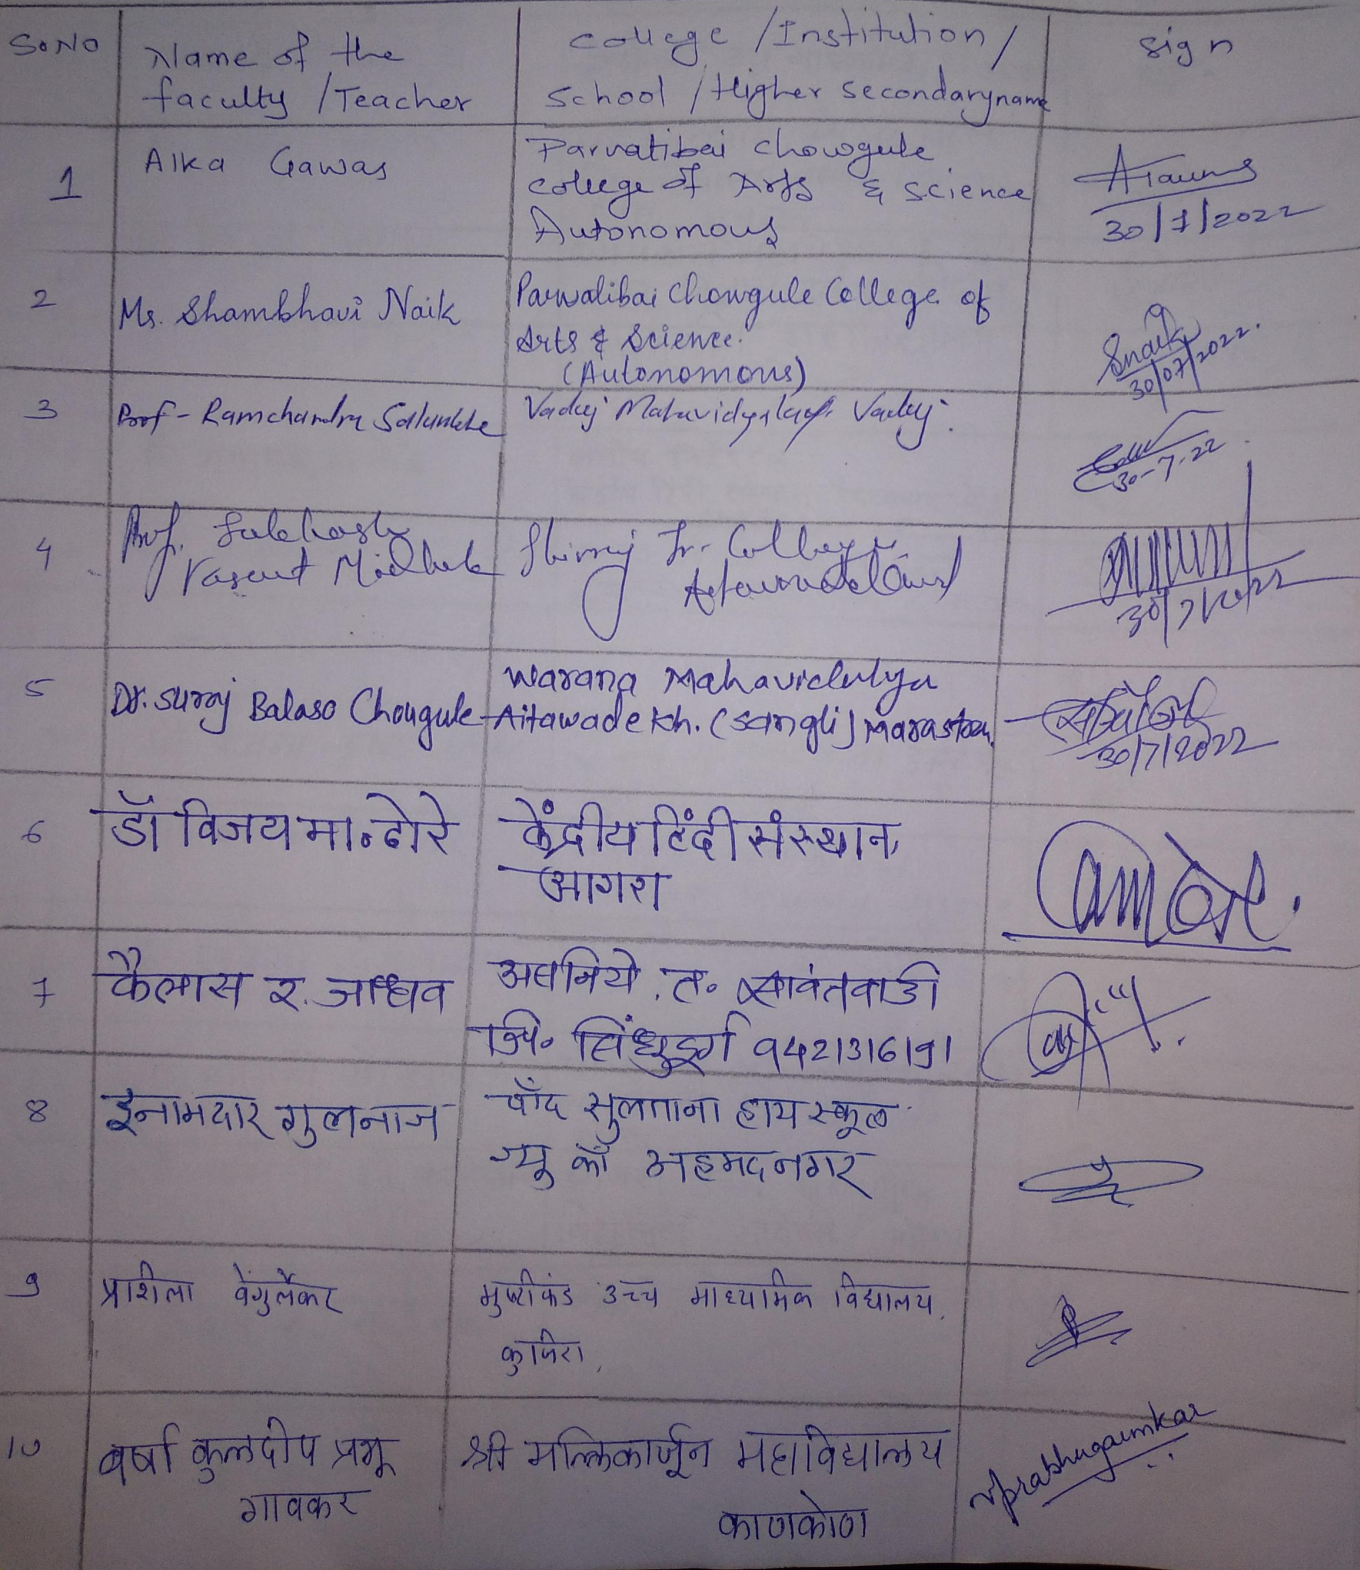 Sr.No
Name of the
faculty / Teacher
College / Institution /
School / Higher secondary name
Sign
1
Alka Gawas
Parvatibai Chowgule
College of Arts & Science
Autonomous
30/7/2022
2
Ms. Shambhavi Naik
Parvatibai Chowgule College of
Arts & Science.
(Autonomous)
Snaik
30/07/2022.
3
Prof - Ramchandra Salunkhe
Vaduj Mahavidyalaya Vaduj.
30-7-22
4
Prof.
Vasant
Jr. College
30/7/2022
5
Dr. Suraj Balaso Chougule
Warana Mahavidulya
Aitawade Kh. (Sangli)
30/7/2022
6
डॉ विजय मा. ढोरे
केंद्रीय हिंदी संस्थान,
आगरा
7
कैलास र. जाधव
त. सावंतवाडी
जि. सिंधुदुर्ग 9421316191
8
इनामदार गुलनाज
चाँद सुलताना हायस्कूल
ज्यू कॉ अहमदनगर
9
प्राशिला वेंगुर्लेकर
उच्च माध्यमिक विद्यालय,
10
वर्षा कुलदीप प्रभू
गावकर
श्री मल्लिकार्जून महाविद्यालय
काणकोण
vprabhugaumkar